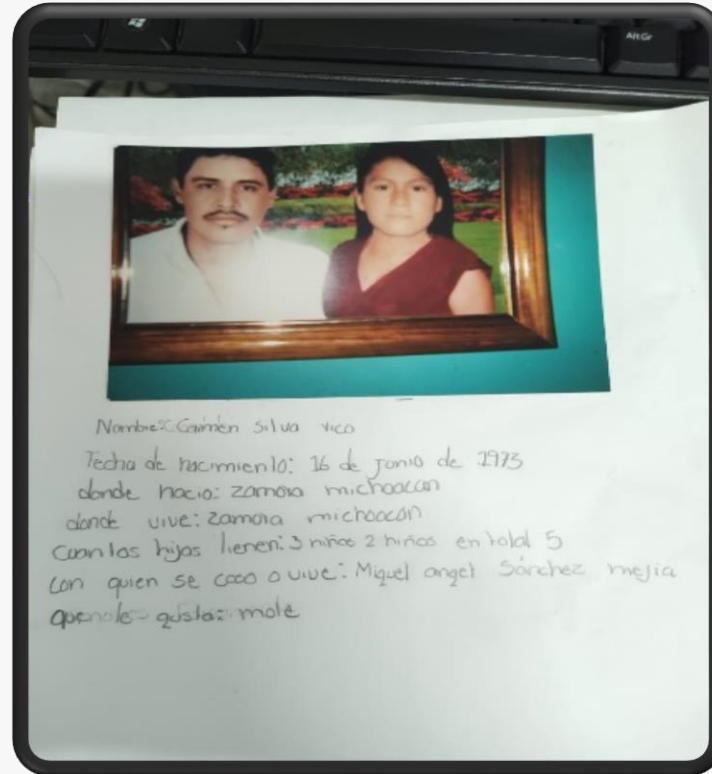 Alt Gr
Nombre: Carmen Silva vico
Fecha de nacimiento: 16 de Junio de 1973
donde nacio: zamora michoacan
donde vive: zamora michoacan
Cuantos hijos tienen: 3 niñas 2 niños en total 5
con quien se caso o vive: Miguel angel Sánchez mejia
que le gusta: mole